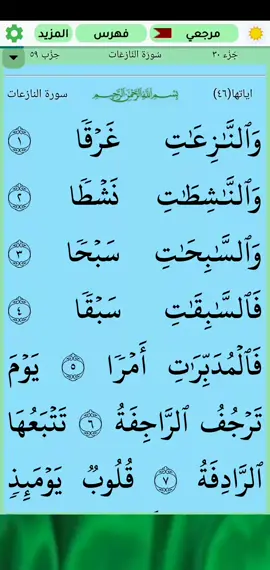 مرجعي فهرس المزيد
جزء ٣٠ سورة النازعات حزب ٥٩
اياتها(٤٦) بسم الله الرحمن الرحيم سورة النازعات
وَٱلنَّٰزِعَٰتِ غَرۡقٗا ١
وَٱلنَّٰشِطَٰتِ نَشۡطٗا ٢
وَٱلسَّٰبِحَٰتِ سَبۡحٗا ٣
فَٱلسَّٰبِقَٰتِ سَبۡقٗا ٤
فَٱلۡمُدَبِّرَٰتِ أَمۡرٗا ٥ يَوۡمَ
تَرۡجُفُ ٱلرَّاجِفَةُ ٦ تَتۡبَعُهَا
ٱلرَّادِفَةُ ٧ قُلُوبٞ يَوۡمَئِذٖ